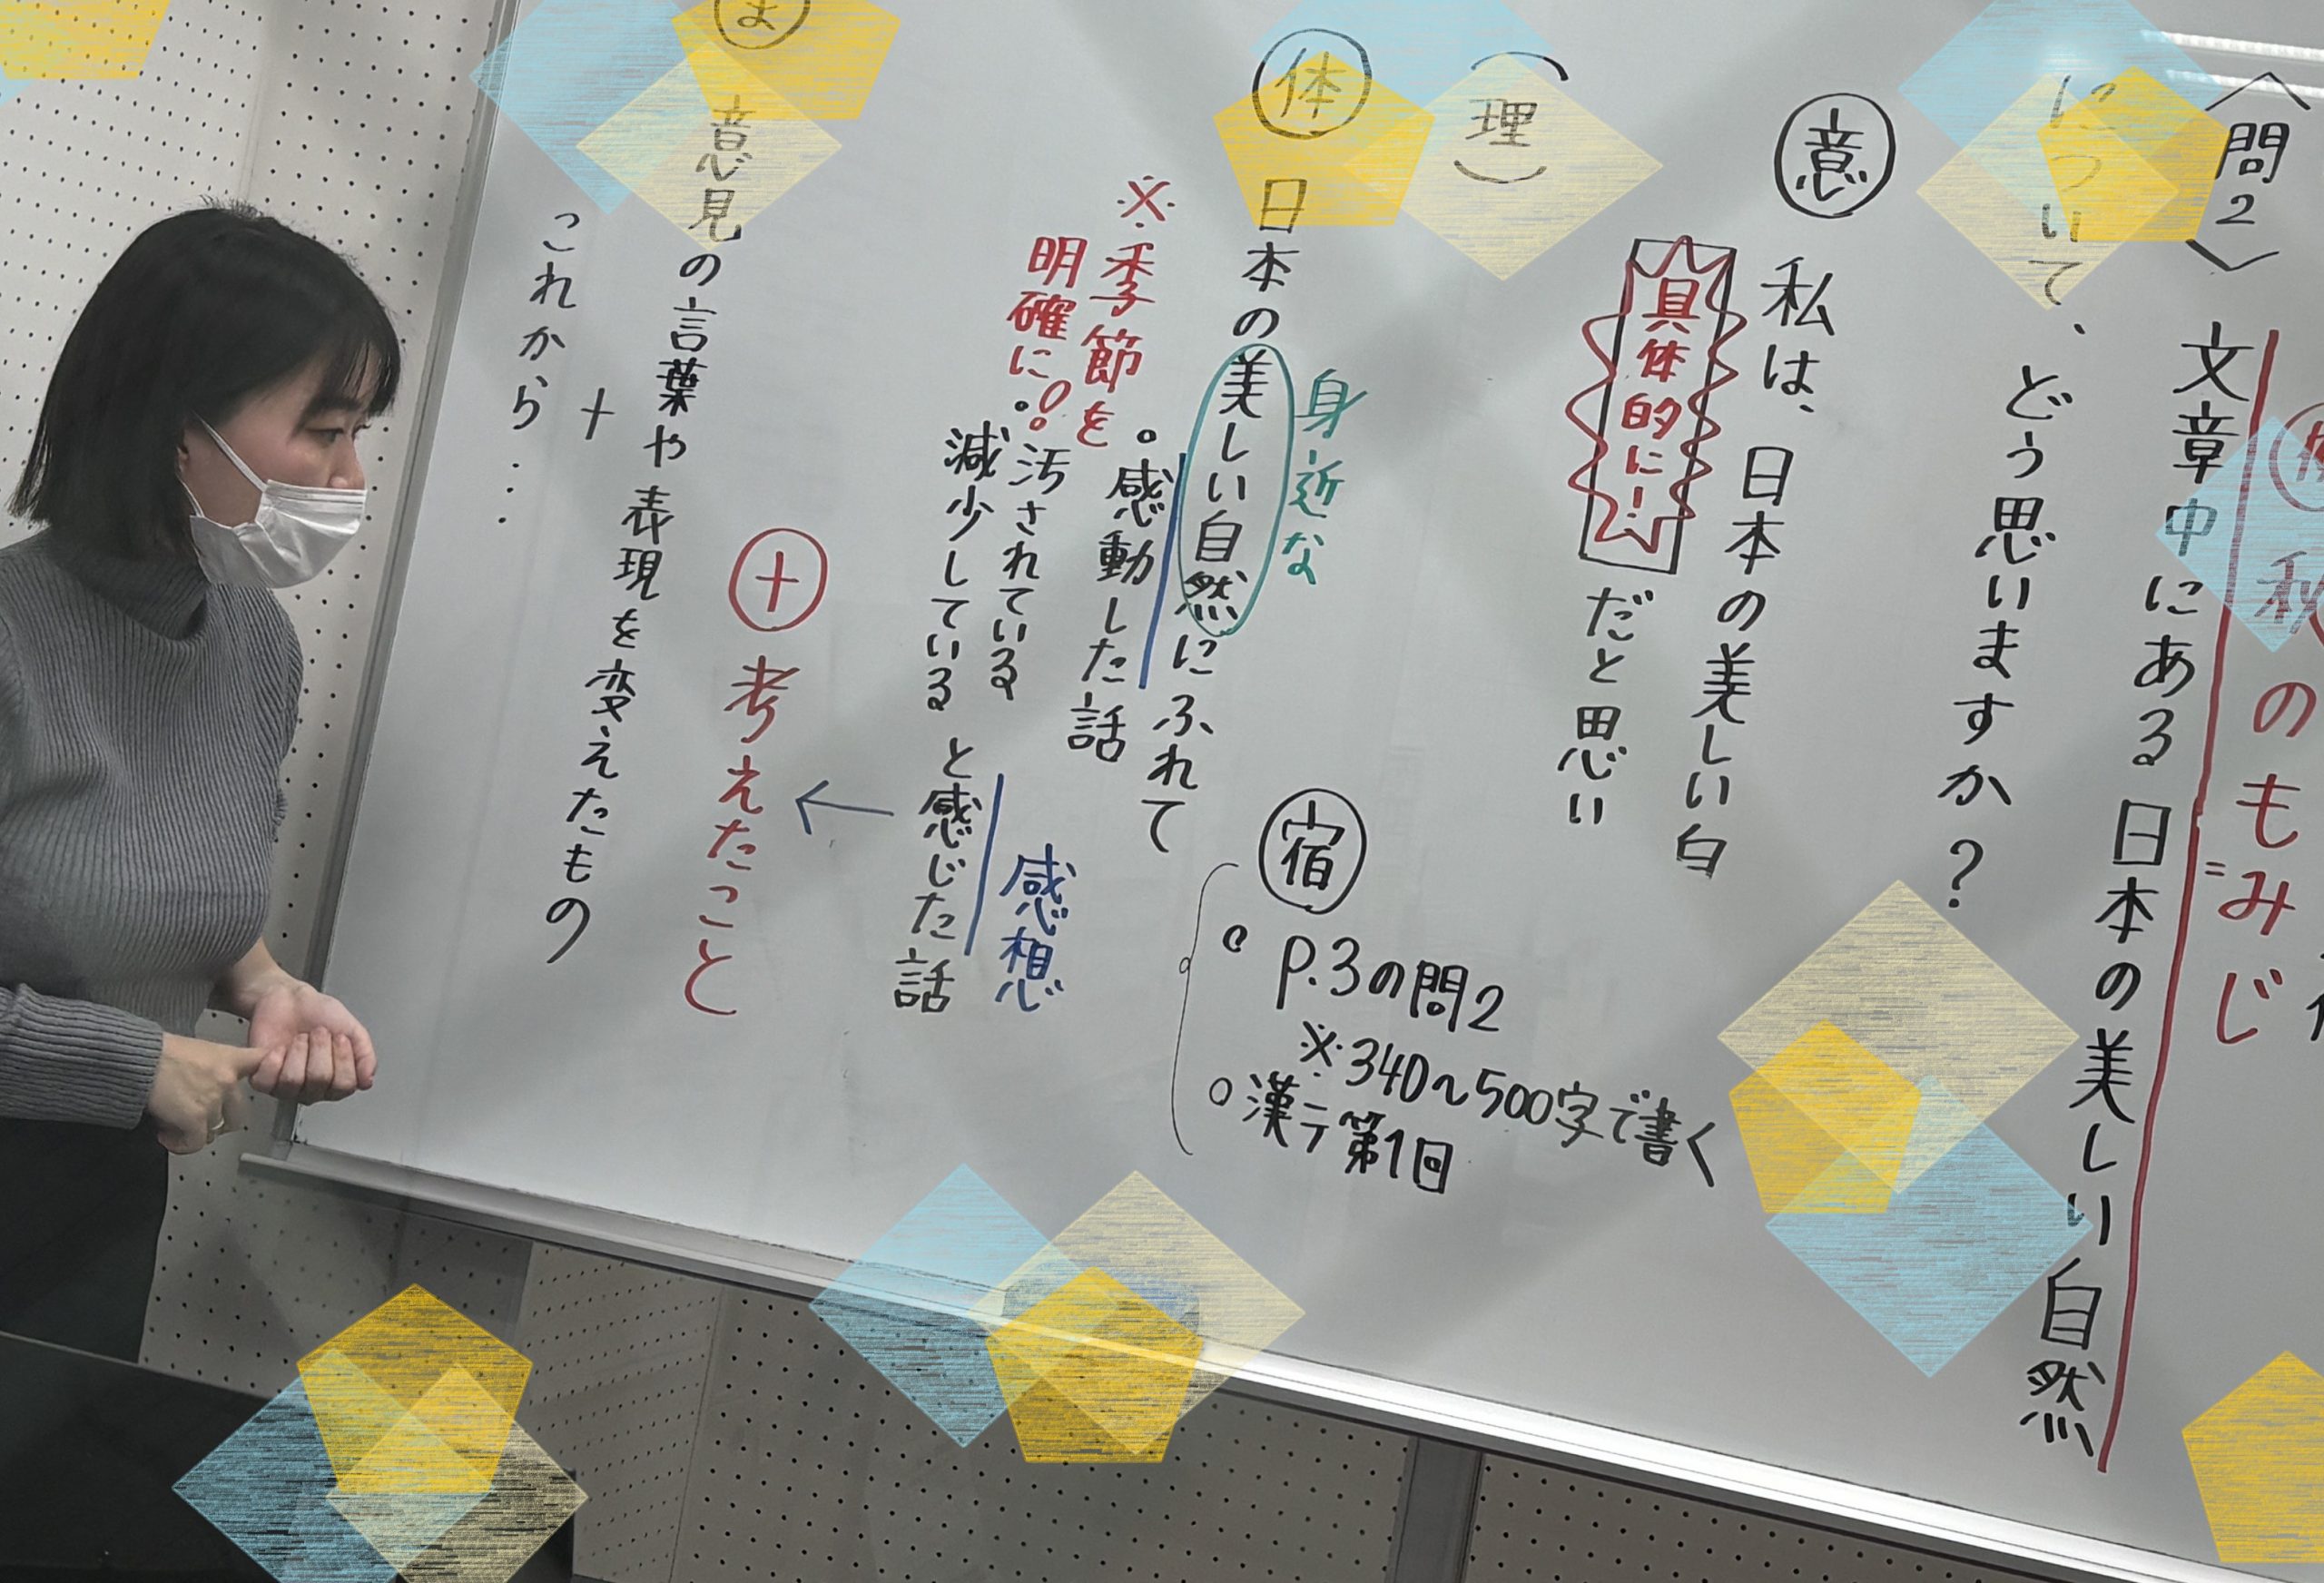 秋のもみじ
〈問2〉
文章中にある日本の美しい自然
について、どう思いますか?
意 私は、日本の美しい白
具体的に!
だと思い
(理)
体 日本の美しい自然にふれて
身近な
。感動した話
※季節を
明確に!
。汚されている
減少している と感じた話
感想
← ＋ 考えたこと
ま 意見の言葉や表現を変えたもの
＋
これから…
宿
。P.3の問2
※340〜500字で書く
。漢テ第1回